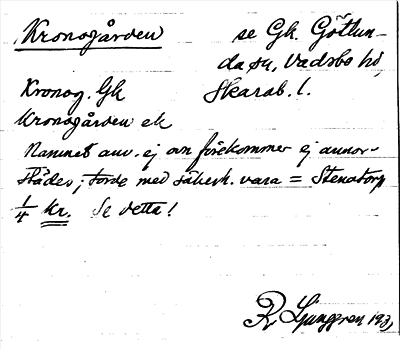 Kronogården
se Gk. Götlun-
da sn, Vadsbo hd,
Skarab. l.
Kronog. Gk
Kronogården ek
Namnet anv. ej om förekommer ej annor-
städes; torde med säkerh. vara = Stenstorp
1/4 kr. Se detta!
R Ljunggren 193